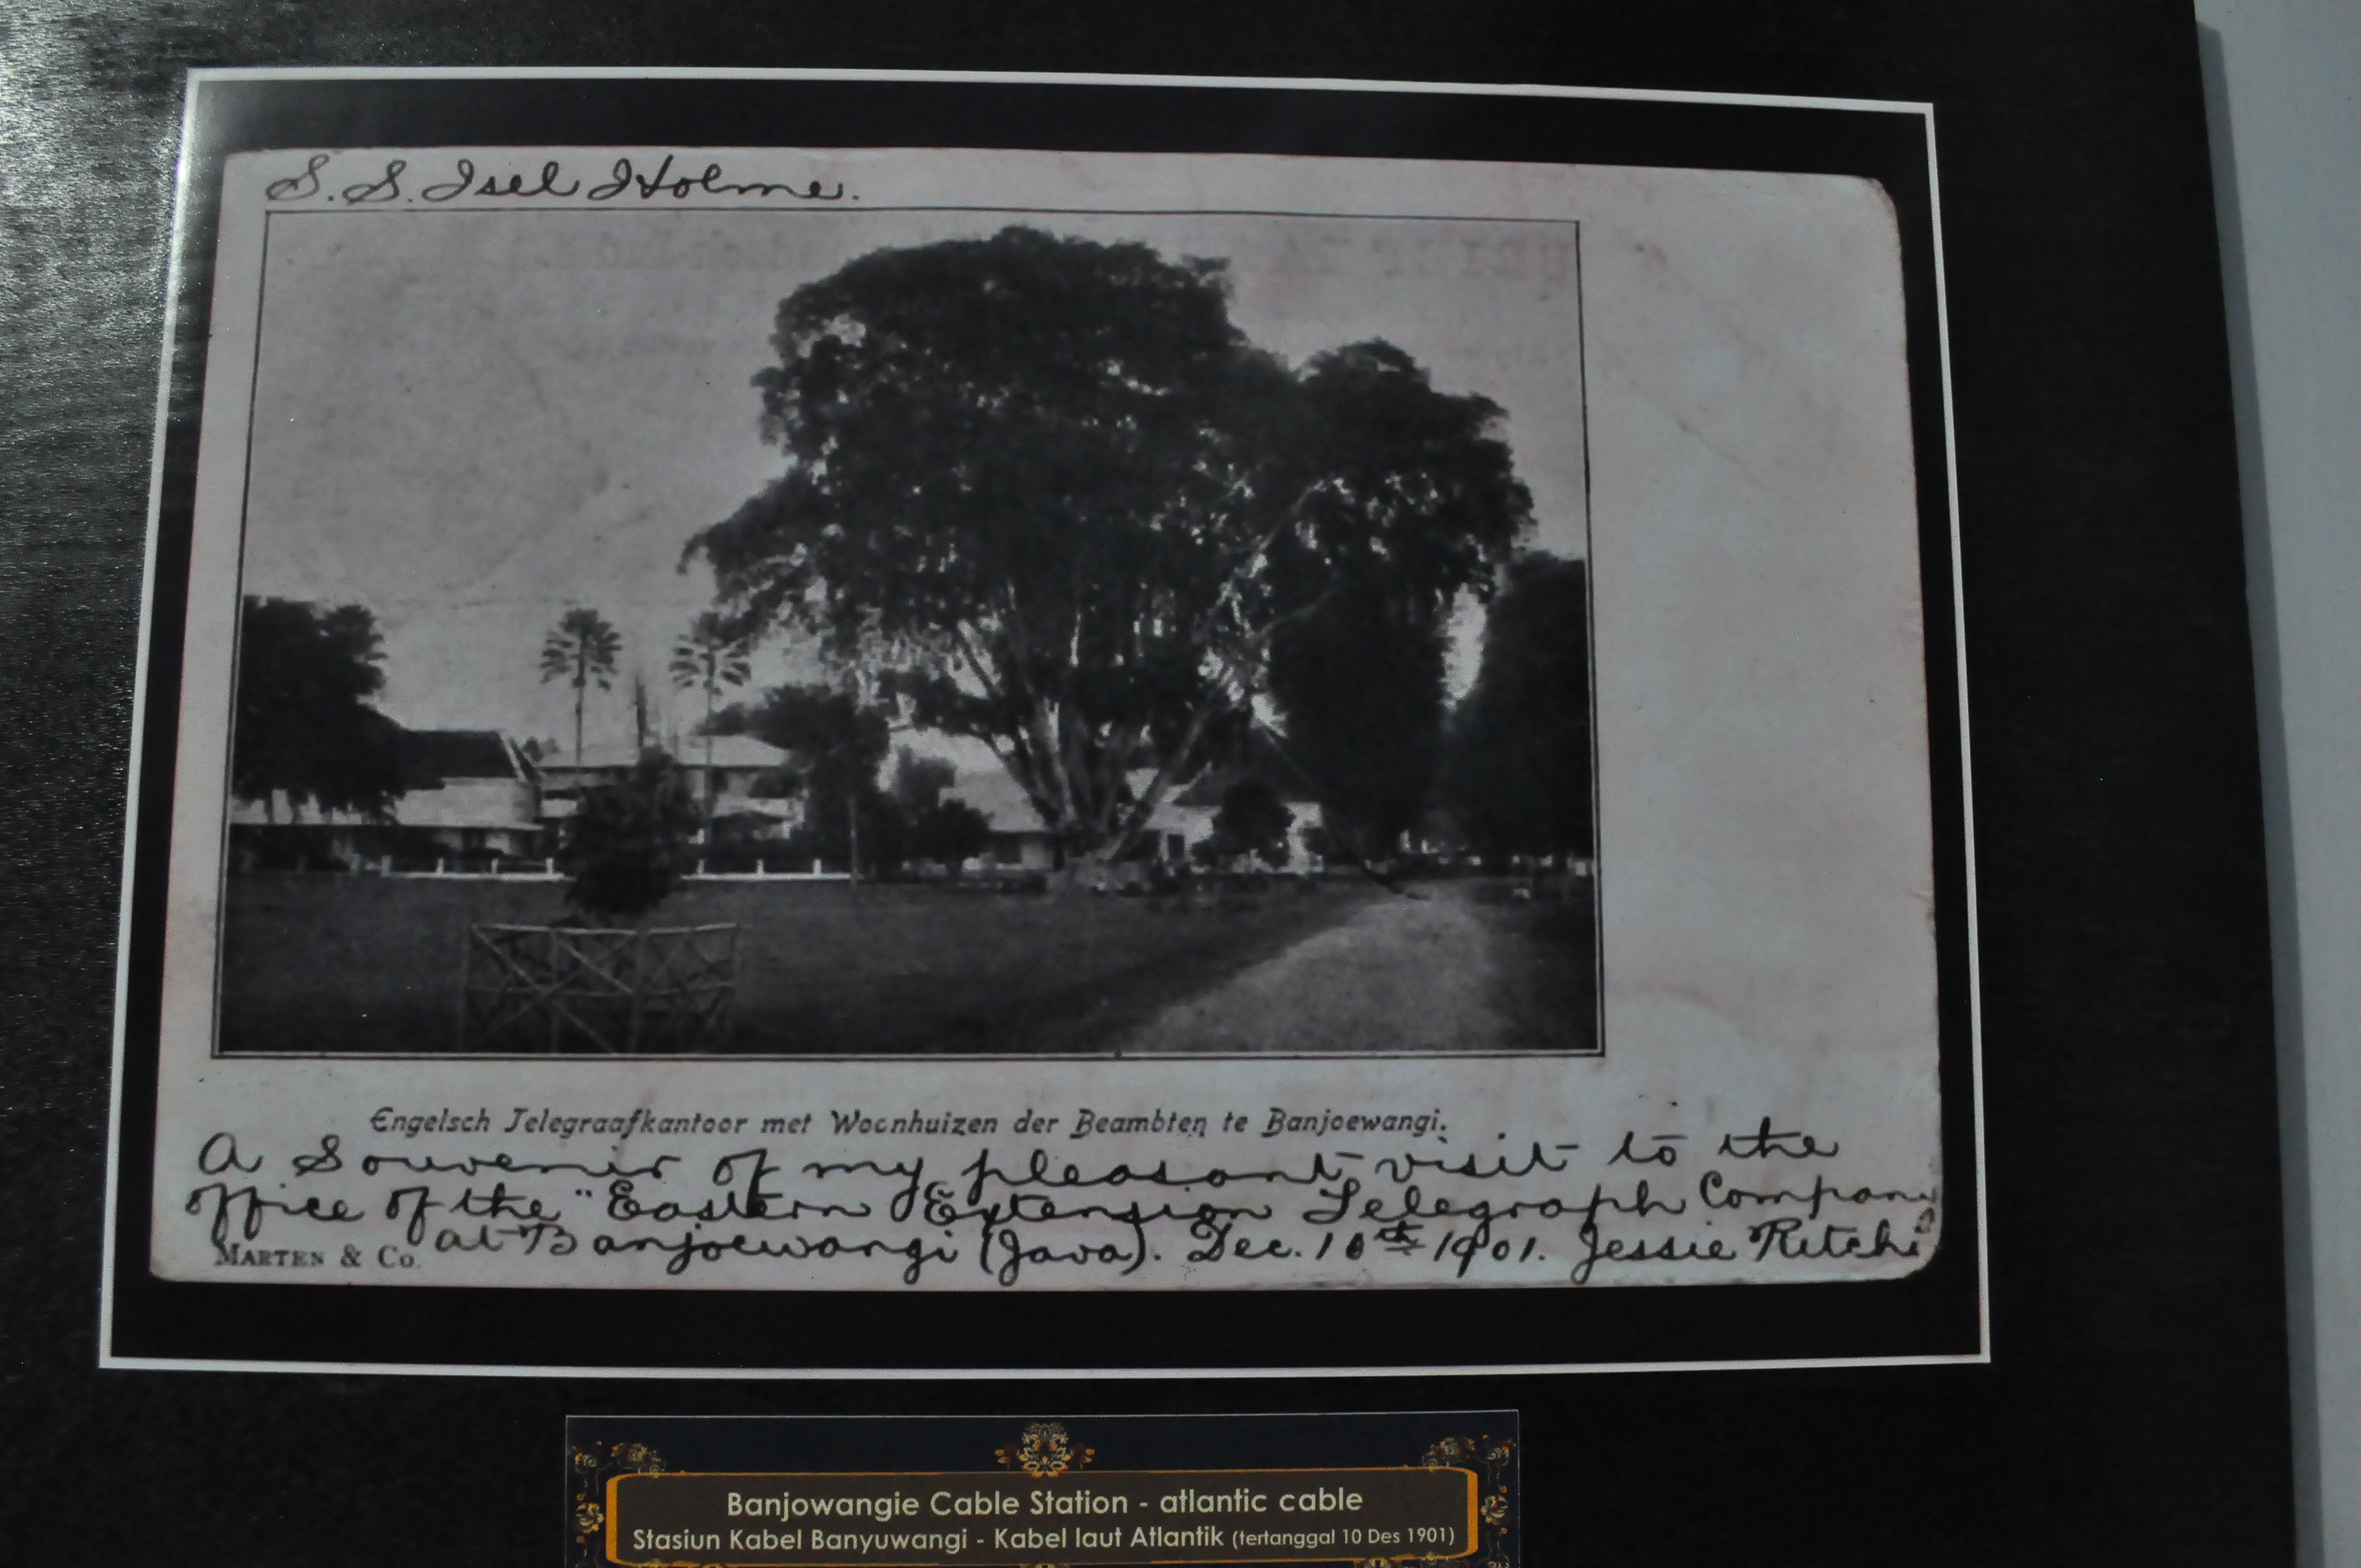 S. S. Isel Holme.
Engelsch Telegraafkantoor met Woonhuizen der Beambten te Banjoewangi.
A Souvenir of my pleasant visit to the
office of the "Eastern Extension Telegraph Company
at Banjoewangi (Java). Dec. 10th 1901. Jessie Ritchie
MARTEN & Co.
Banjowangie Cable Station - atlantic cable
Stasiun Kabel Banyuwangi - Kabel laut Atlantik (tertanggal 10 Des 1901)